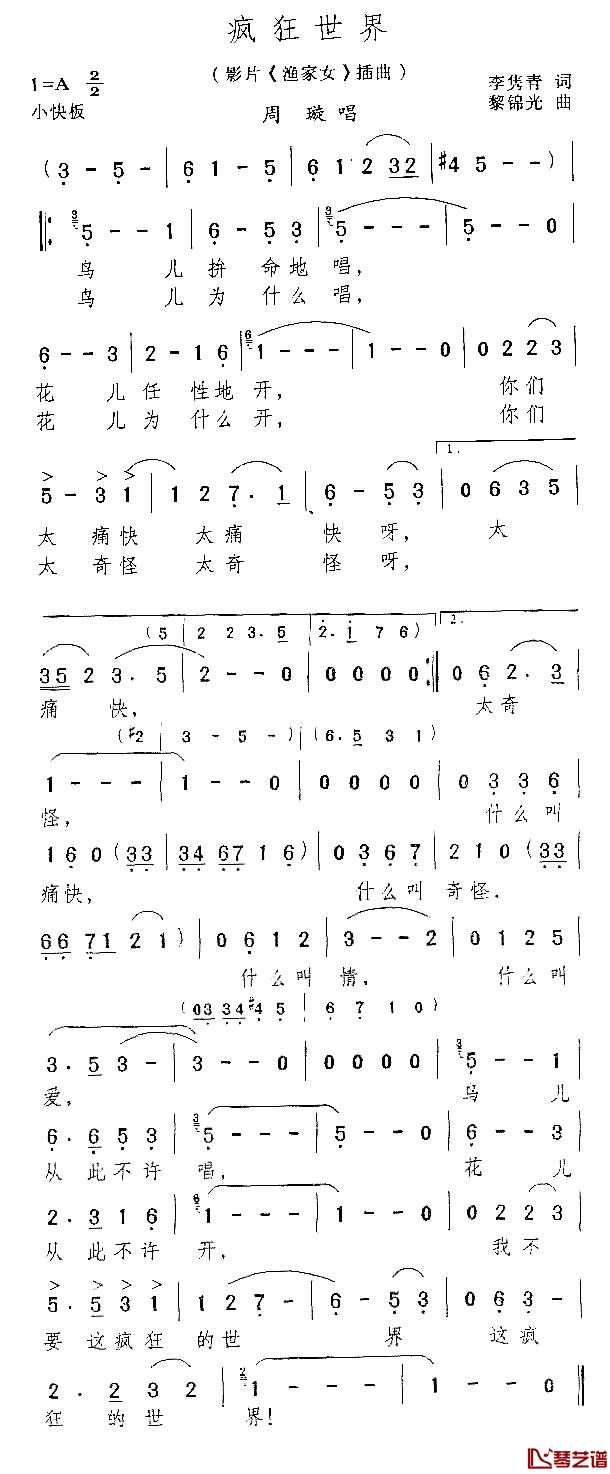 疯狂世界
(影片《渔家女》插曲)
1=A 2/2
李隽青 词
小快板
黎锦光 曲
周璇唱
(3 - 5 - | 6 1 - 5 | 6 1 2 32 | #4 5 - - )
5 - - 1 | 6 - 5 3 | 5 - - - | 5 - - 0
鸟 儿 拚 命地 唱,
鸟 儿 为 什么 唱,
6 - - 3 | 2 - 1 6 | 1 - - - | 1 - - 0 | 0 2 2 3
花 儿任 性地 开, 你们
花 儿为 什么 开, 你们
1.
5 - 3 1 | 1 2 7 . 1 | 6 - 5 3 | 0 6 3 5
太 痛快 太痛 快呀, 太
太 奇怪 太奇 怪呀,
(5 | 2 2 3 . 5 | 2 . 1 7 6) 2.
35 2 3 . 5 | 2 - - 0 | 0 0 0 0 :| 0 6 2 . 3
痛 快, 太奇
(#2 | 3 - 5 - ) | (6 . 5 3 1)
1 - - - | 1 - - 0 | 0 0 0 0 | 0 3 3 6
怪, 什么叫
1 6 0 (33 | 34 67 1 6) | 0 3 6 7 | 2 1 0 (33
痛快, 什么叫 奇怪.
66 71 2 1 ) | 0 6 1 2 | 3 - - 2 | 0 1 2 5
什么叫 情, 什么叫
(03 34 #4 5 | 6 7 1 0)
3 . 5 3 - | 3 - - 0 | 0 0 0 0 | 5 - - 1
爱, 鸟 儿
6 . 6 5 3 | 5 - - - | 5 - - 0 | 6 - - 3
从 此不许 唱, 花 儿
2 . 3 1 6 | 1 - - - | 1 - - 0 | 0 2 2 3
从 此不许 开, 我不
5 . 5 3 1 | 1 2 7 - | 6 - 5 3 | 0 6 3 -
要 这疯狂 的世 界 这疯
2 . 2 3 2 | 1 - - - | 1 - - 0
狂 的世 界!
琴艺谱